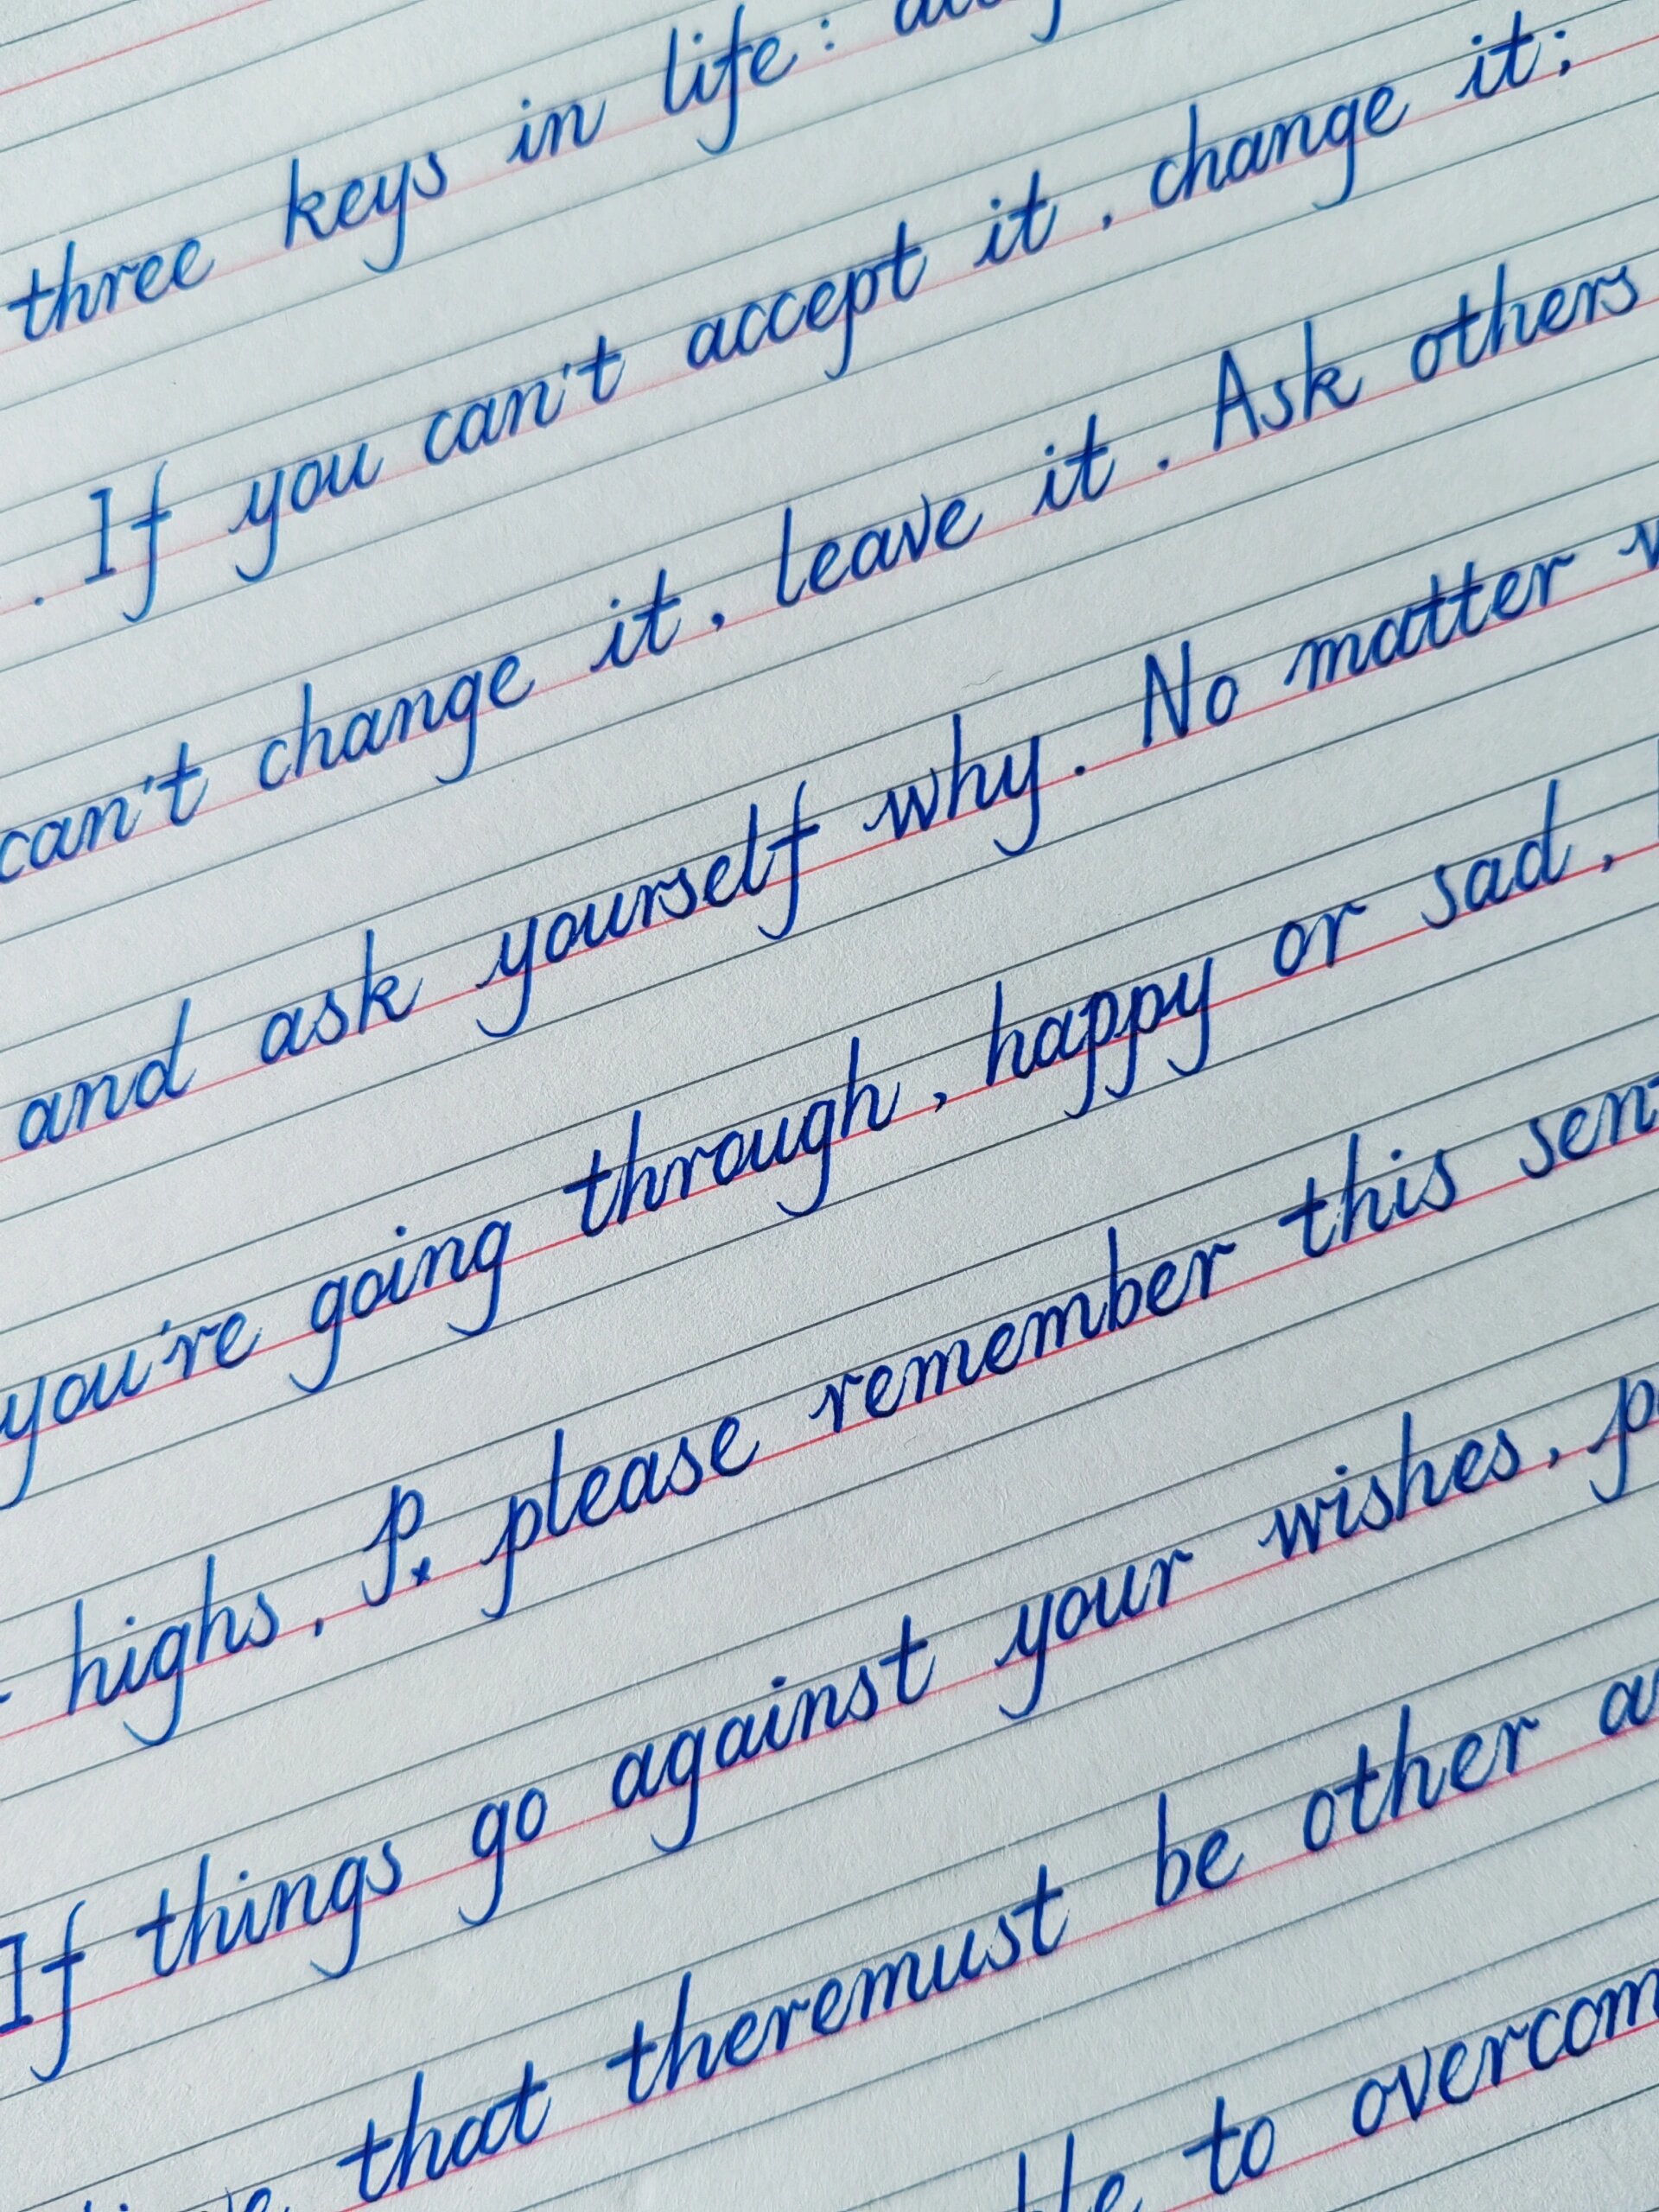 three keys in life:
. If you can't accept it, change it;
can't change it, leave it. Ask others
and ask yourself why. No matter
you're going through, happy or sad,
highs, P. please remember this
If things go against your wishes,
that theremust be other
to